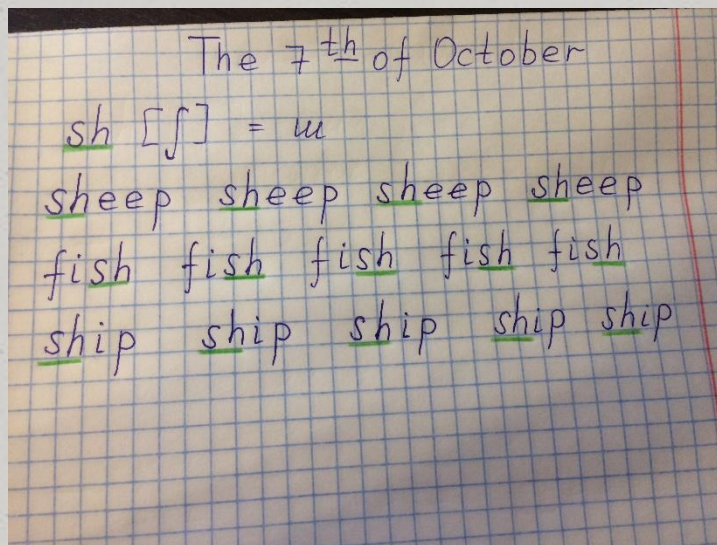 The 7th of October
sh [ʃ] = ш
sheep sheep sheep sheep
fish fish fish fish fish
ship ship ship ship ship